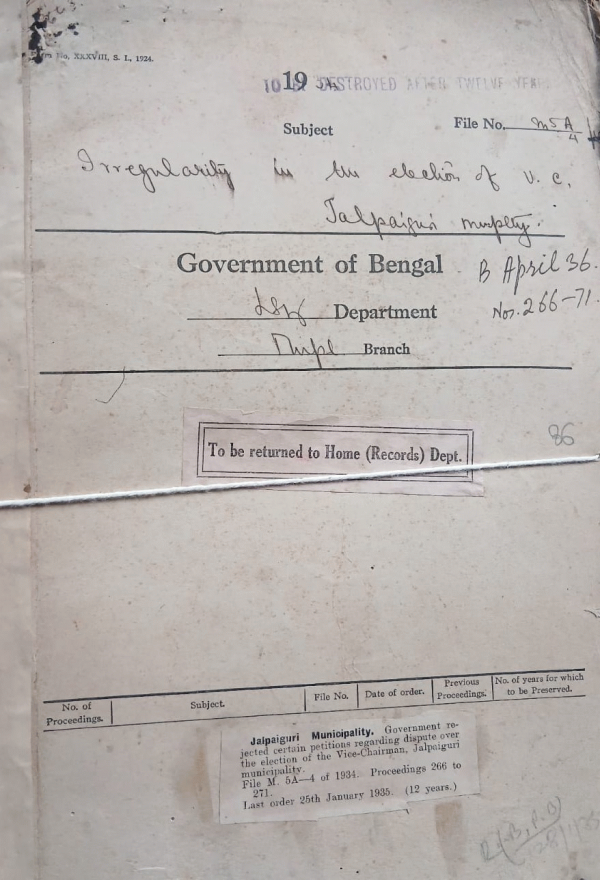 No, XXXVIII, S. I., 1924.
19
TO BE DESTROYED AFTER TWELVE YEARS
Subject
File No. M5A/4
Irregularity in the election of V. C.
Jalpaiguri muplty.
Government of Bengal
B April 36.
Nos. 266-71.
LSG Department
Mupl Branch
86
To be returned to Home (Records) Dept.
No. of Proceedings. Subject. File No. Date of order. Previous Proceedings. No. of years for which to be Preserved.
Jalpaiguri Municipality. Government re-
jected certain petitions regarding dispute over
the election of the Vice-Chairman, Jalpaiguri
municipality.
File M. 5A—4 of 1934. Proceedings 266 to
271.
Last order 25th January 1935. (12 years.)